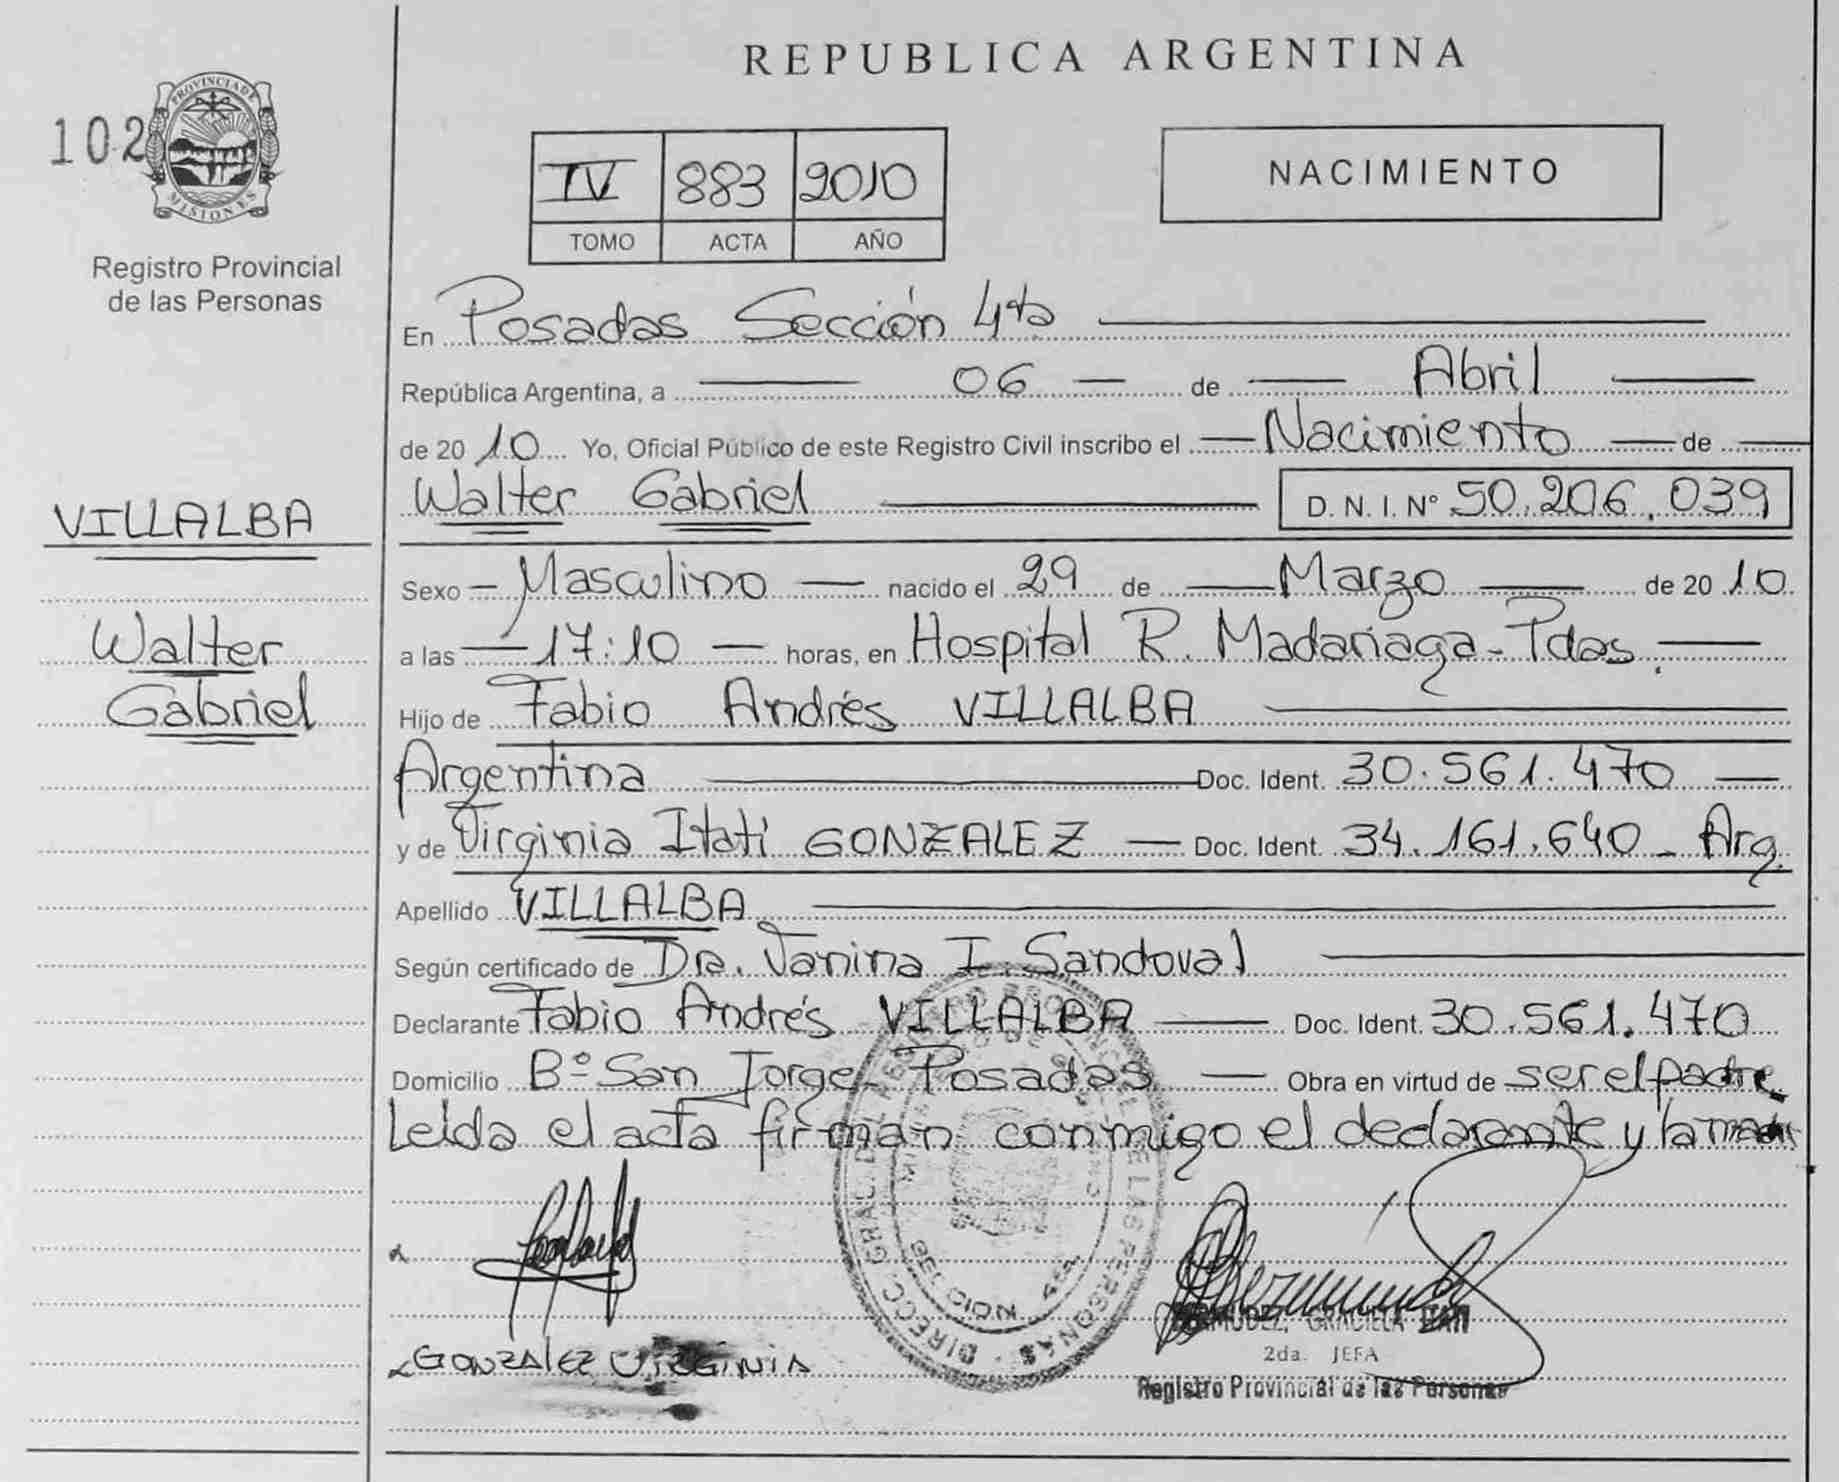 REPUBLICA ARGENTINA
102
PROVINCIA DE
MISIONES
Registro Provincial
de las Personas
IV 883 2010
TOMO ACTA AÑO
NACIMIENTO
En Posadas Sección 4ta
República Argentina, a 06 de Abril
de 2010 Yo, Oficial Público de este Registro Civil inscribo el Nacimiento de
Walter Gabriel D. N. I. Nº 50.206.039
VILLALBA
Walter
Gabriel
Sexo Masculino nacido el 29 de Marzo de 2010
a las 17:10 horas, en Hospital R. Madariaga - Pdas.
Hijo de Fabio Andrés VILLALBA
Argentina Doc. Ident. 30.561.470
y de Virginia Itatí GONZALEZ Doc. Ident. 34.161.640 - Arg.
Apellido VILLALBA
Según certificado de Dra. Vanina I. Sandoval
Declarante Fabio Andrés VILLALBA Doc. Ident. 30.561.470
Domicilio Bº San Jorge - Posadas Obra en virtud de ser el padre
Leída el acta firman conmigo el declarante y la madre
GONZALEZ VIRGINIA
BERMUDEZ, GRACIELA ITATI
2da. JEFA
Registro Provincial de las Personas